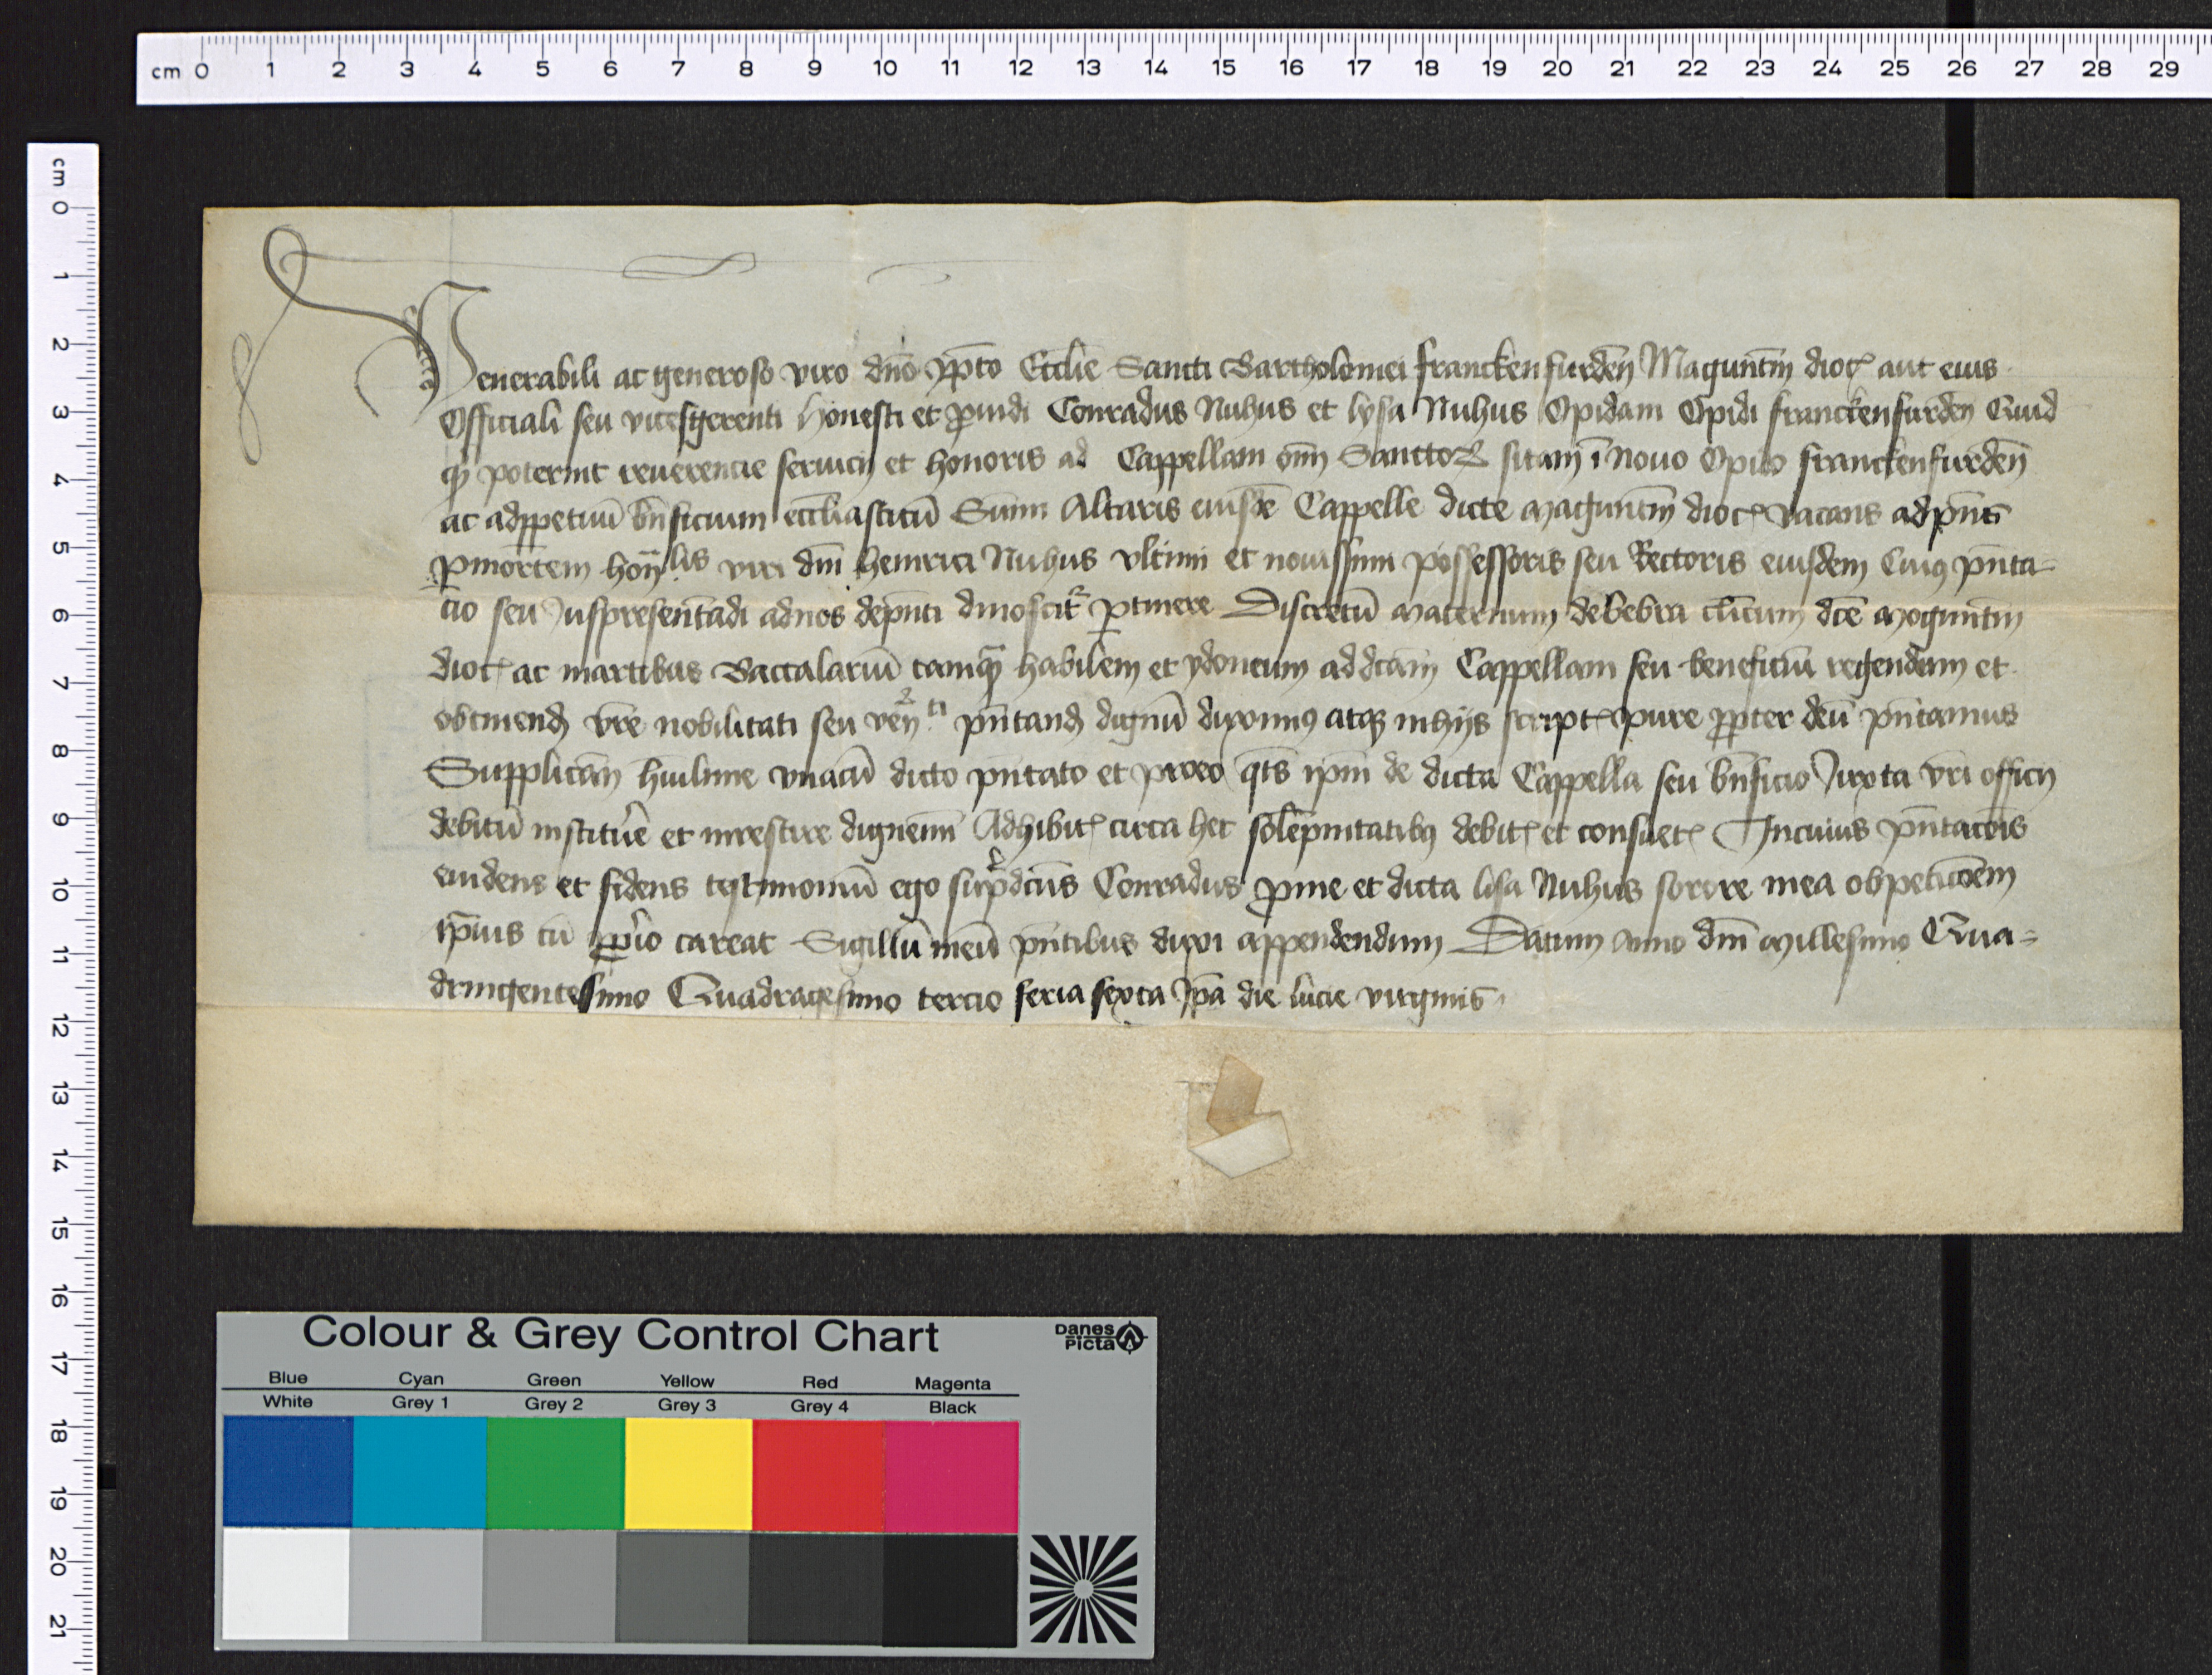 cm 0 1 2 3 4 5 6 7 8 9 10 11 12 13 14 15 16 17 18 19 20 21 22 23 24 25 26 27 28 29
cm 0 1 2 3 4 5 6 7 8 9 10 11 12 13 14 15 16 17 18 19 20 21
Venerabili ac generoso viro dn̄o p̄pto Ecclīe Sancti Bartholomei franckenfurdēn Maguntīn dioc̄ aut eius
Officiali seu vicesgerenti honesti et ꝓuidi Conradus Nuhus et lysa Nuhus Opidani Opidi franckenfurdēn Quid
qͥd poterint reuerencie seruicij et honoris ad Cappellam om̄ Sanctoꝝ sitam ī nouo Opido franckenfurdēn
ac adꝑpetuū bn̄ficium eccl̄iasticū Sūmi Altaris eiusdē Cappelle dicte maguntīn dioc̄ vacans adpn̄s
ꝑmortem hon̄lis viri dn̄i heinrici Nuhus vltimi et nouissimi possessoris seu Rectoris eiusdem Cuiꝰ pn̄ta=
cio seu Juspresentādi adnos dep̄nti dinoscitᷣ ꝑtinere Discretū maternum debebra cl̄icum dc̄e mogunt̄in
dioc̄ ac in artibus Baccalariū tamqͣꝫ habilem et ydoneum addc̄am Cappellam seu beneficiū regendum et
obtinend vr̄e nobilitati seu ren̄ti pn̄tand dignū duximꝰ atqꝫ inhijs script̄ pure ꝓpter deū pn̄tamus
Supplican̄ hūilime vnacū dicto pn̄tato et proeo qͣt̄s ip̄m de dicta Cappella seu bn̄ficio Juxta vr̄i officij
debitū institūe et inuestire dignemī Adhibit̄ circa hec solempnitatibꝰ debit̄ et consuet̄ Incuius pn̄tacōis
euidens et fidens testimoniū ego sup̄dcūs Conradus ꝓme et dicta lisa Nuhus sorore mea obpeticōem
ip̄ius cū ꝓprio careat Sigillū meū pn̄tibus duxi appendendum Datum Anno dn̄i Millesimo Qua=
dringentesimo Quadragesimo tercio feria sexta Ip̄a die lucie virginis
Colour & Grey Control Chart
Danes
Picta
Blue Cyan Green Yellow Red Magenta
White Grey 1 Grey 2 Grey 3 Grey 4 Black